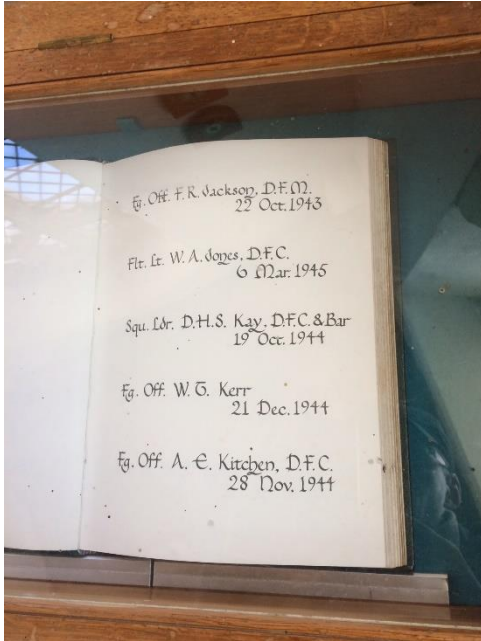 Fg. Off. F. R. Jackson, D.F.M.
22 Oct. 1943
Flt. Lt. W. A. Jones, D.F.C.
6 Mar. 1945
Squ. Ldr. D.H.S. Kay, D.F.C. & Bar
19 Oct. 1944
Fg. Off. W. G. Kerr
21 Dec. 1944
Fg. Off. A. E. Kitchen, D.F.C.
28 Nov. 1944